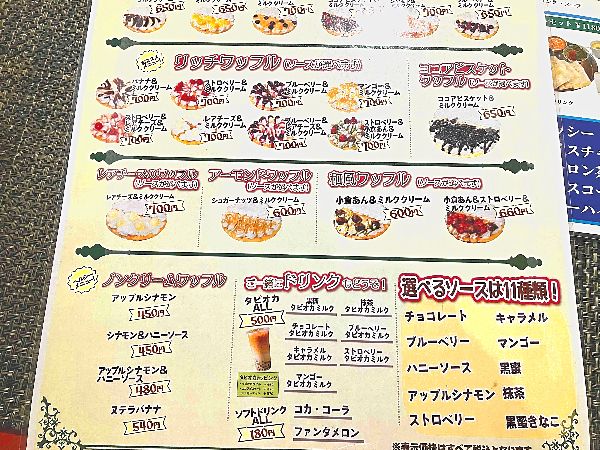 650円 650円 700円 700円 700円
リッチワッフル (ソースが選べます)
バナナ&
ミルククリーム
700円
ストロベリー&
ミルククリーム
700円
ブルーベリー&
ミルククリーム
700円
マンゴー&
ミルククリーム
700円
レアチーズ&
ミルククリーム
700円
ブルーベリー
レアチーズ&
ミルククリーム
ストロベリー
小倉あん&
ミルククリーム
ココアビスケット
ワッフル (ソースが選べます)
ココアビスケット&
ミルククリーム
650円
レアチーズワッフル
(ソースが選べます)
レアチーズ&ミルククリーム
700円
アーモンドワッフル
(ソースが選べます)
シュガーナッツ&ミルククリーム
600円
和風ワッフル (ソースが選べます)
小倉あん&ミルククリーム
600円
小倉あん&ストロベリー
ミルククリーム
660円
ノンクリームワッフル
アップルシナモン
450円
シナモン&ハニーソース
450円
アップルシナモン&
ハニーソース
480円
ヌテラバナナ
540円
ご一緒にドリンクもどうぞ!
タピオカ
ALL
500円
黒糖
タピオカミルク
抹茶
タピオカミルク
チョコレート
タピオカミルク
ブルーベリー
タピオカミルク
キャラメル
タピオカミルク
ストロベリー
タピオカミルク
マンゴー
タピオカミルク
ソフトドリンク
ALL
180円
コカ・コーラ
ファンタメロン
選べるソースは11種類!
チョコレート キャラメル
ブルーベリー マンゴー
ハニーソース 黒蜜
アップルシナモン 抹茶
ストロベリー 黒蜜きなこ
※表示価格はすべて税込となります